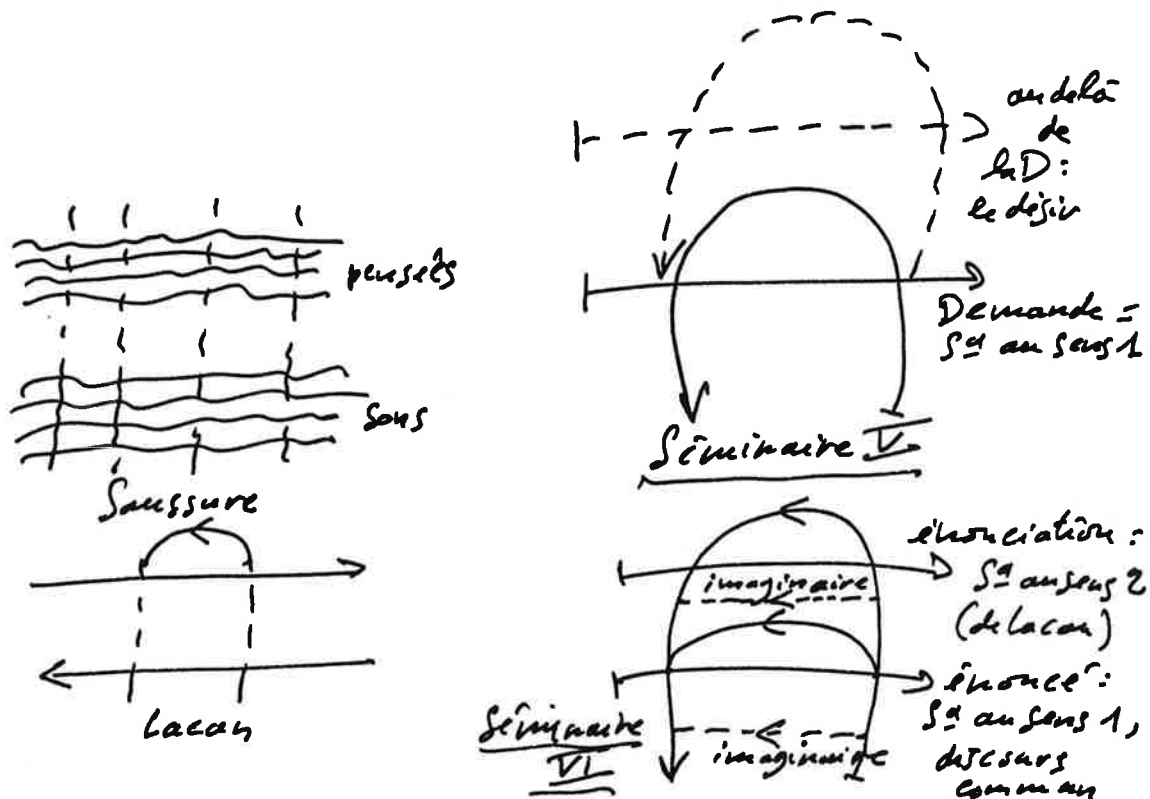 pensées
sons
Saussure
Lacan
au delà
de
la D :
le désir
Demande =
Sᵃ au sens 1
Séminaire V
énonciation :
Sᵃ au sens 2
(de Lacan)
imaginaire
énoncé :
Sᵃ au sens 1,
discours
commun
imaginaire
Séminaire
VI